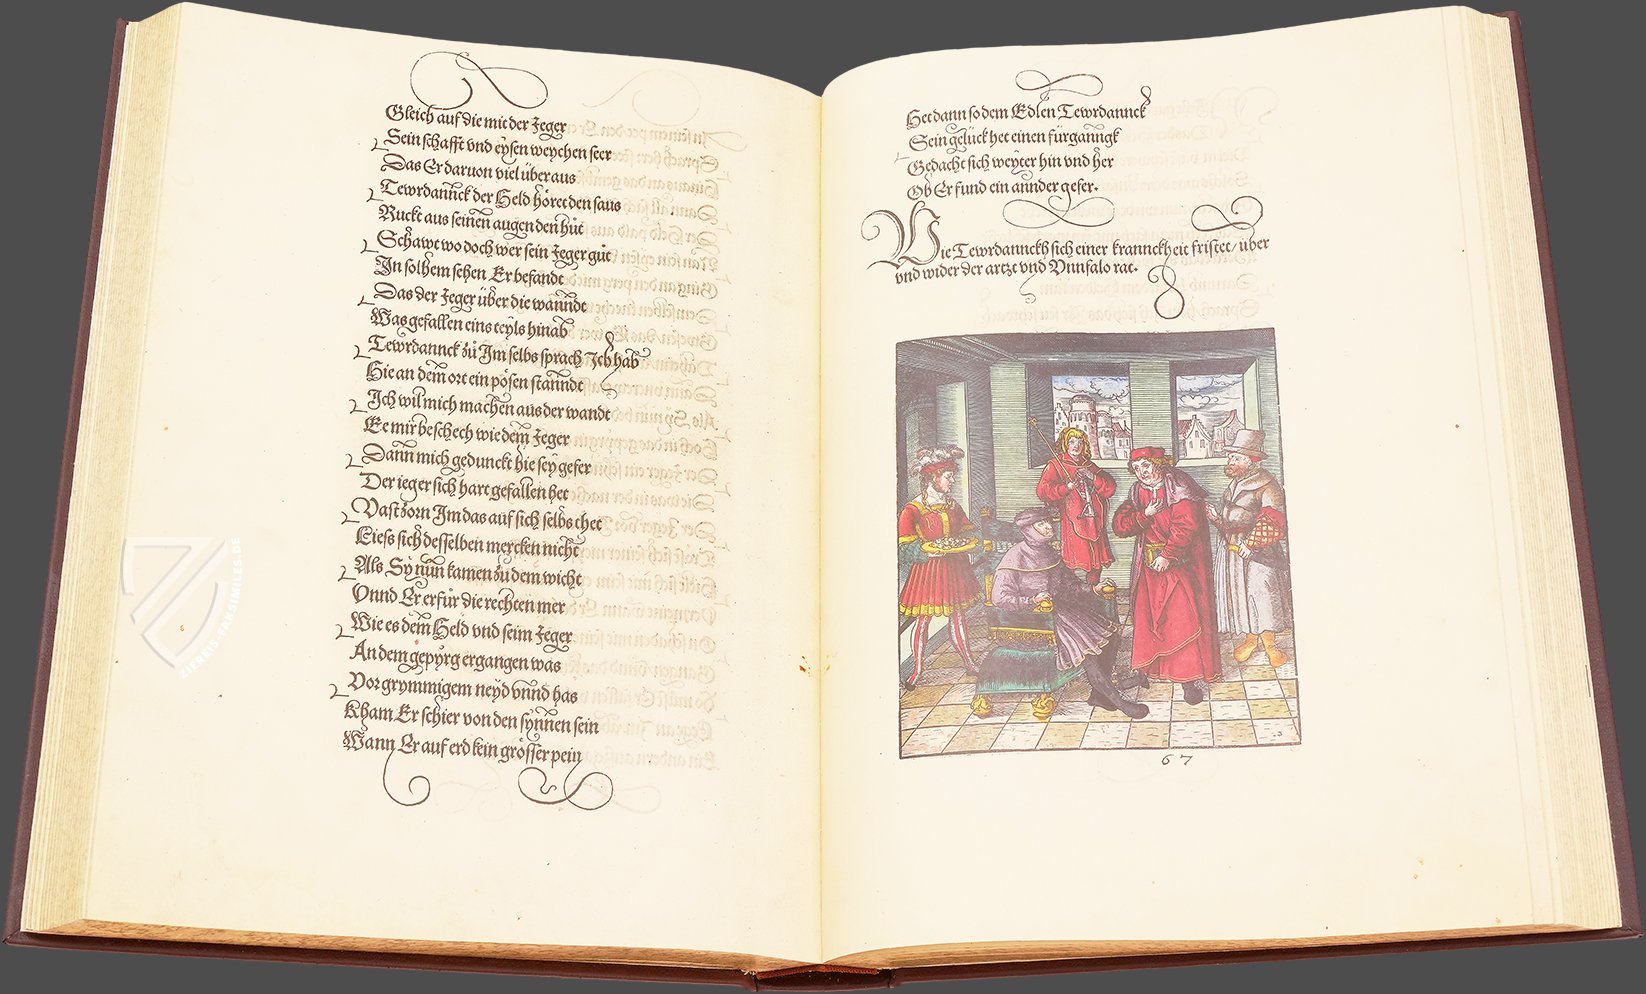 Gleich auf die mit der Jeger
Sein schafft vnd eysen weychen seer
Das Er daruon viel über aus
Tewrdannck der Held höret den saus
Ruckt aus seinen augen den hůt
Schawt wo doch wer sein Jeger gůt
In solhem sehen Er befandt
Das der Jeger über die wanndt
Was gefallen eins teyls hinab
Tewrdannck zů Im selbs sprach Ich hab
Hie an dem ort ein pösen stanndt
Ich wil mich machen aus der wandt
Ee mir beschech wie dem Jeger
Dann mich gedunckt hie sey gefer
Der ieger sich hart gefallen het
Vast zorn Im das auf sich selbs thet
Liess sich desselben mercken nicht
Als Sy nun kamen zů dem wicht
Vnnd Er erfůr die rechten mer
Wie es dem Held vnd seim Jeger
An dem gepyrg ergangen was
Vor grymmigem neyd vnnd has
Kham Er schier von den synnen sein
Wann Er auf erd kein grösser pein
Het dann so dem Edlen Tewrdannck
Sein gelück het einen fürganngk
Gedacht sich weyter hin vnd her
Ob Er fund ein annder gefer.
Wie Tewrdannckh sich einer kranckheit fristet / über
vnd wider der artzt vnd Vnnfalo rat.
67
ZIEREIS-FAKSIMILES.DE